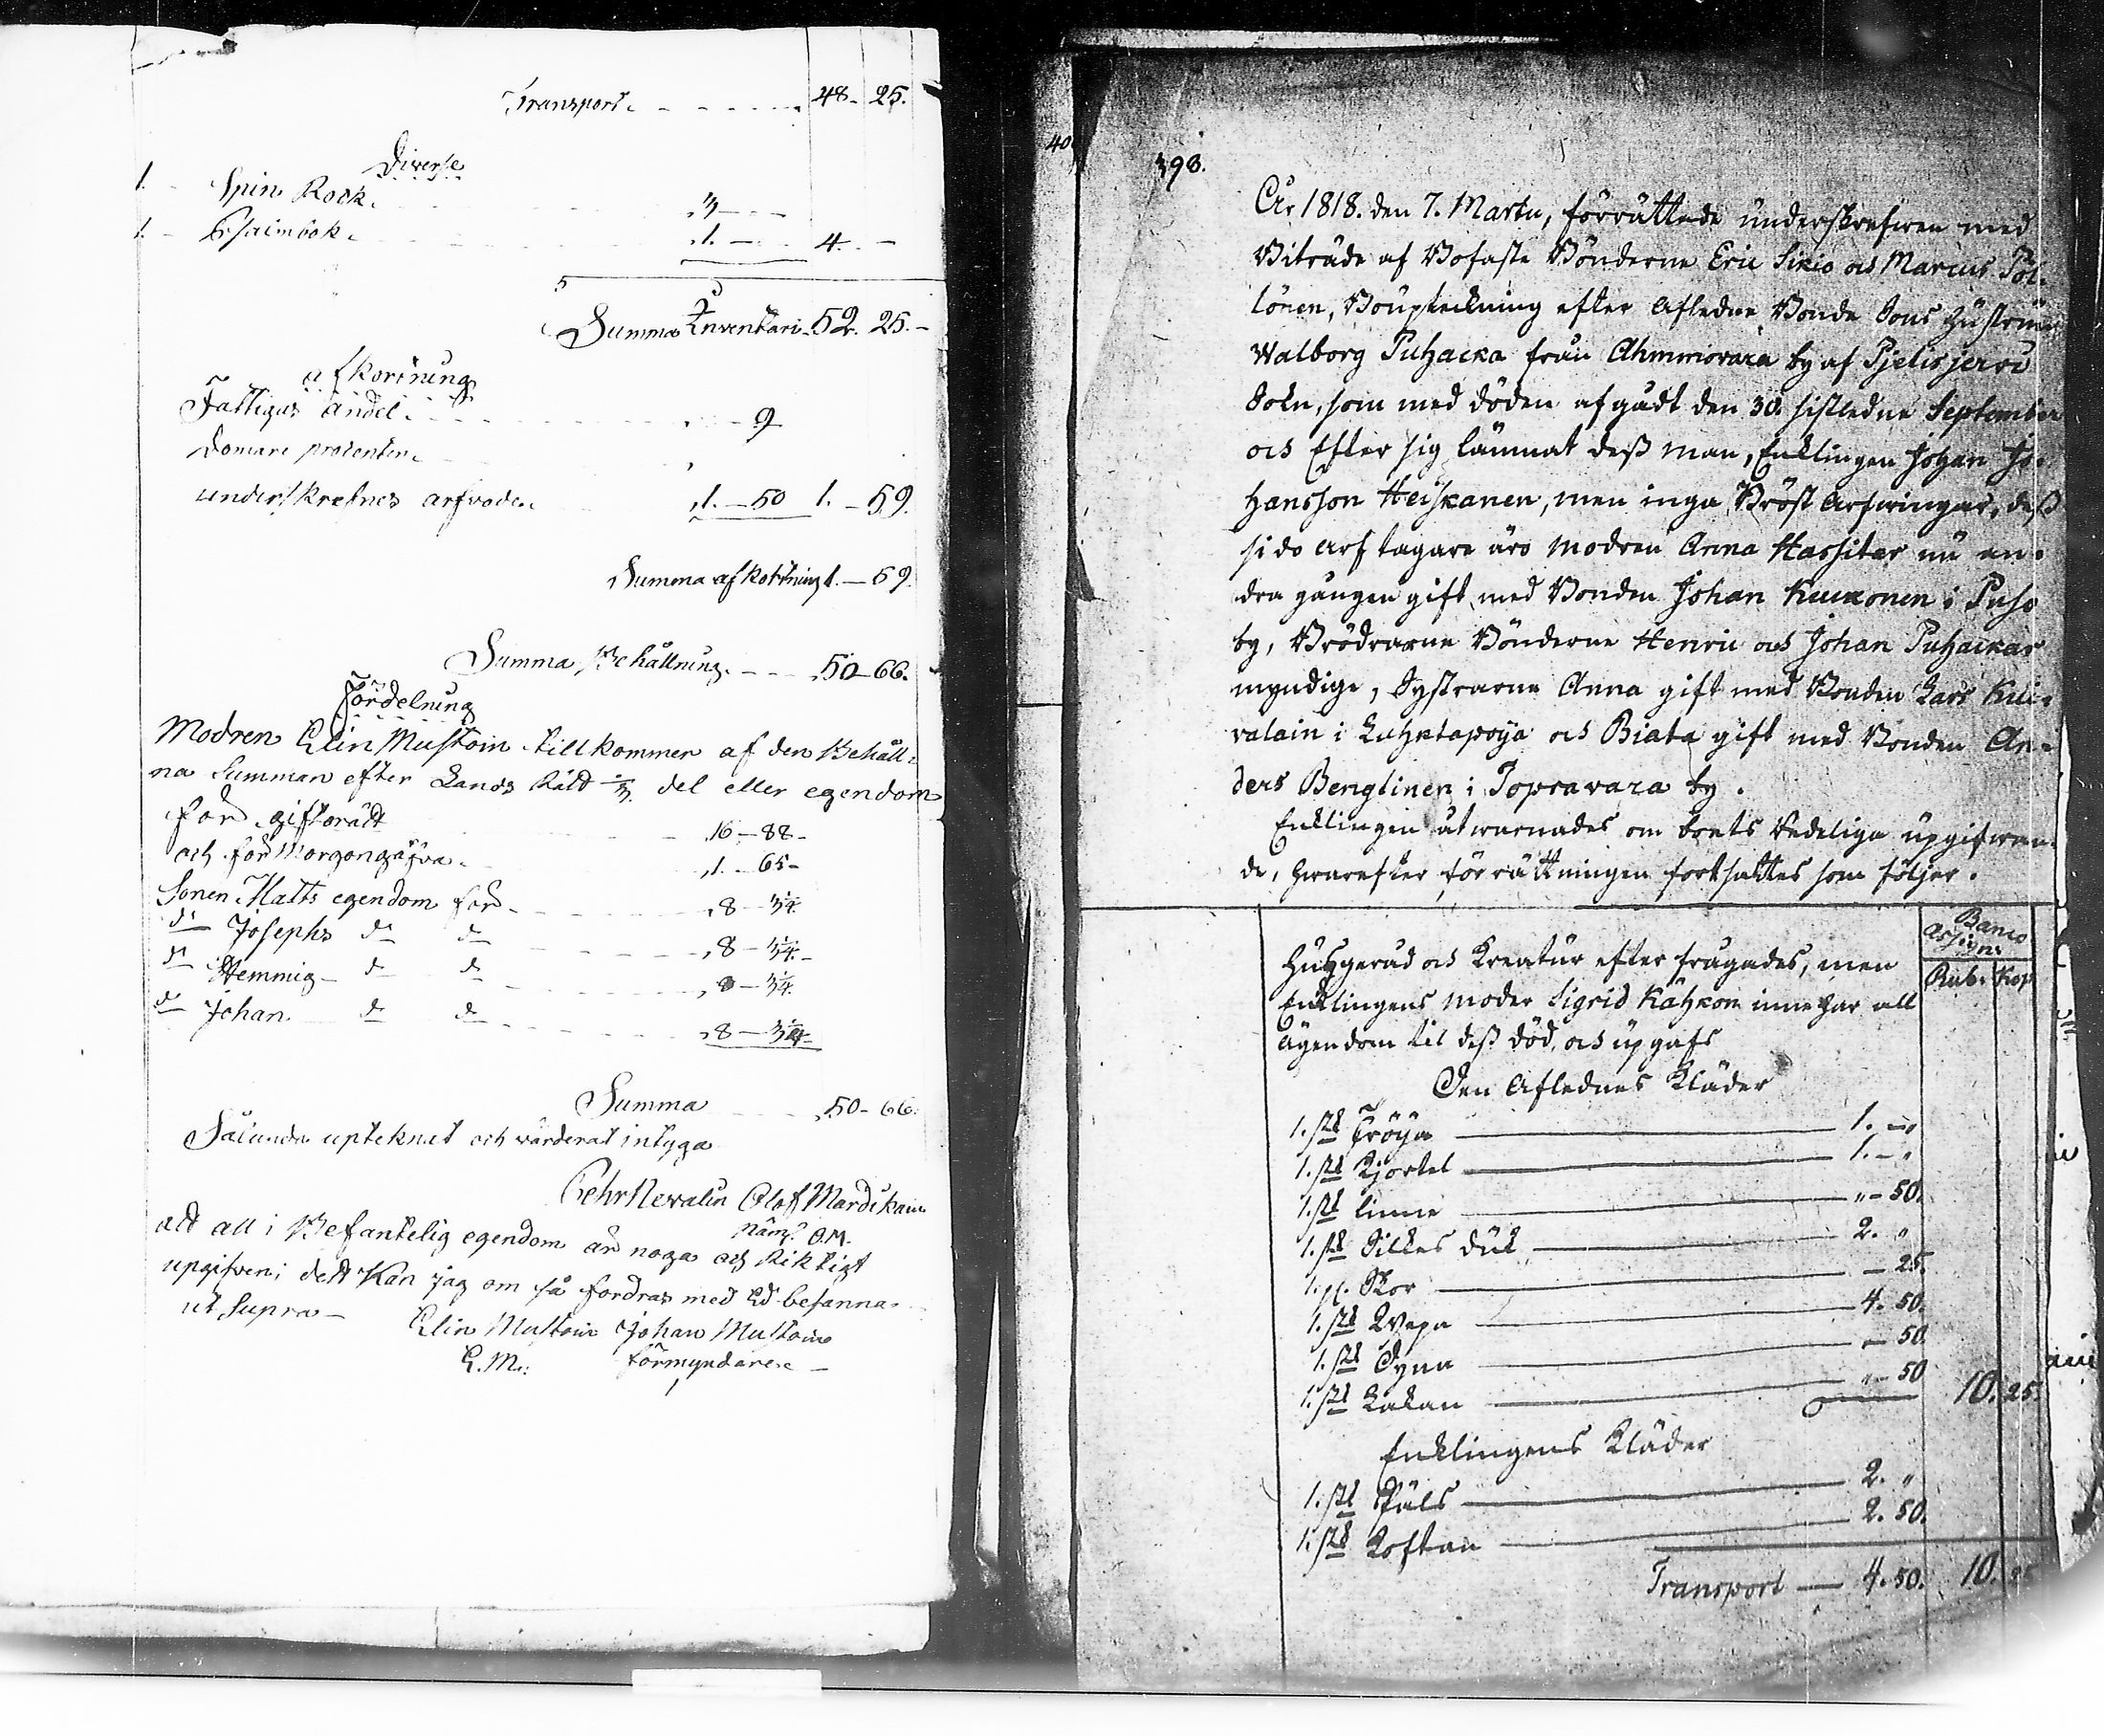 Transport 48 - 25.
Diverse
1. Spin Rock. 3 - -
1. Psalmbok. 1. - 4. -
Summa Inventari 52. 25. -
afkortning
Fattigas andel 9
Domare procenten
underskrefnes arfvode 1. - 50 1. - 59.
Summa afkortning 1. - 59.
Summa Behållning. 50 - 66.
Fördelning
Modren Elin Mustoin tillkommer af den Behåll-
na Summan efter Lands Rätt 1/3. del eller egendom
för giftorätt 16 - 88 -
och för Morgongåfva 1. - 65 -
Sonen Matts egendom för 8 - 3 1/4.
do Josephs do do 8 - 3 1/4. -
do Hemmig do do 8 - 3 1/4.
do Johan do do 8 - 3 1/4 -
Summa 50 - 66.
Sålunda upteknat och värderat intyga
Pehr Nevalin Olof Mardikain
Näm: O.M.
att all i Befantelig egendom är noga och Riktigt
upgifven; dett Kan jag om så fordras med Ed besanna.
ut Supra -
Elin Mustoin Johan Mustoin
E. M: förmyndare. -
40
398.
År 1818. den 7. Martii, förrättade underskrefwen med
Biträde af Bofaste Bönderne Eric Sikio och Marcus Pöl-
lönen, Bouptekning efter Afledne Bonde Sons Hustrun
Walborg Puhacka från Ahmmovara by af Pjelisjerwi
Sokn, som med döden afgådt den 30. sistledne September
och Efter sig lämnat dess man, Enklingen Johan Jo-
hansson Heiskanen, men inga Bröst Arfwingar, dess
sido arftagare äro modren Anna Hassitar nu an-
dra gången gift med Bonden Johan Kuckonen i Puso
by, Brödrarne Bönderne Henric och Johan Puhackar
myndige, Systrarne Anna gift med Bonden Lars Kili-
valain i Luhtapoija och Biata gift med Bonden An-
ders Benglinen i Topravara by.
Enklingen åtwarnades om boets Redeliga upgifwan-
de, hwarefter förrättningen fortsattes som följer.
Banco
Assign:
Rub. Kop
Husgeråd och Kreatur efter frågades, men
Enklingens moder Sigrid Kähkoin innehar all
Ägendom til dess död, och upgafs
Den Aflednes Kläder
1. st Tröija 1. - "
1. st Kjortel 1. - "
1. st linne " - 50.
1. st Silkes duk 2. "
1. p. Skor - 25.
1. st Wepa 4. 50.
1. st Dyna - 50.
1. st Lakan " - 50 10. 25.
Enklingens Kläder
1. st Päls 2. "
1. st Koftan 2. 50.
Transport 4. 50. 10. 25